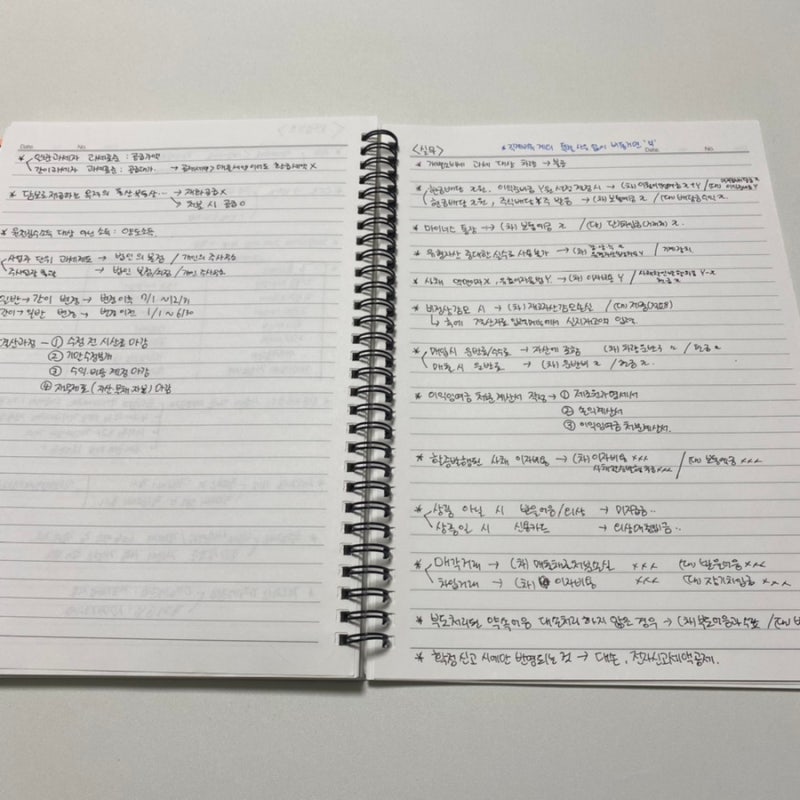 Date No.
* 일반과세자 과세표준 : 공급가액
간이과세자 과세표준 : 공급대가
* 담보로 제공하는 목적의 동산 부동산 … → 재화공급 X
→ 처분 시 공급 O
* 원천징수 대상 아닌 소득 : 양도소득
사업자 단위 과세제도 → 법인의 본점 / 개인의 주사무소
주사업장 총괄 → 법인 본점/지점 / 개인 주사무소
일반 → 간이 변경 → 변경이후 7/1 ~ 12/31
간이 → 일반 변경 → 변경이전 1/1 ~ 6/30
결산과정 – ① 수정 전 시산표 마감
② 기말수정분개
③ 수익·비용 계정 마감
④ 재무제표 (자산 부채 자본) 마감
<실무>
Date No.
* 개별소비세 과세 대상 차량 → 불공
* 현금배당 x원, 이익준비금 Y원 설정 결정시 → (차) 이월이익잉여금 x+Y / (대)
현금배당 x원, 주식배당 ¥주 받음 → (차) 보통예금 x / (대) 배당금수익 x.
* 마이너스 통장 → (차) 보통예금 x / (대) 단기차입금(거래처) x.
* 사채 액면가 X, 유효이자율법 Y → (차) 이자비용 Y / 사채할인발행차금 Y-x
현금 x
* 비정상감모 시 → (차) 재고자산감모손실 / (대) 제품(적요8)
* 매입시 운반료/수수료 → 자산에 포함
매출시 운반료 → (차) 운반비 x / 현금 x.
* 이익잉여금 처분계산서 작성 → ① 제조원가명세서
② 손익계산서
③ 이익잉여금 처분계산서.
* 할증발행된 사채 이자비용 → (차) 이자비용 xxx / (대) 보통예금 xxx
사채할증발행차금 xxx
* 상품 아닐 시 받을어음/외상 → 미지급금..
상품일 시 신용카드 → 외상매입금..
* 매각거래 → (차) 매출채권처분손실 xxx (대) 받을어음 xxx
차입거래 → (차) 이자비용 xxx (대) 단기차입금 xxx
* 부도처리된 약속어음 대손처리 하지 않은 경우 → (차) 부도어음과수표 / (대) 받
* 확정신고 시에만 반영되는 것 → 대손, 전자신고세액공제.